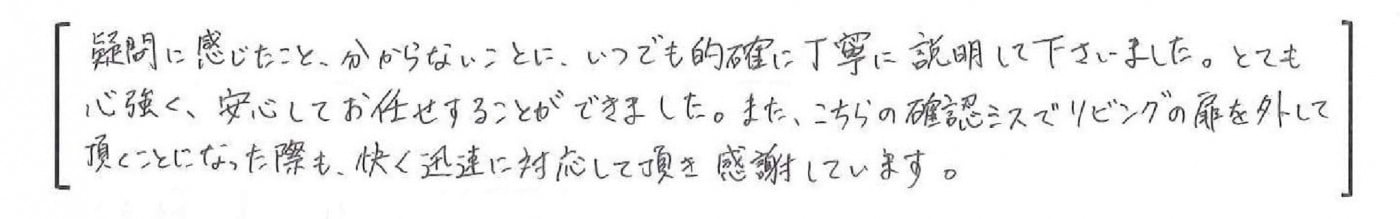 疑問に感じたこと、分からないことに、いつでも的確に丁寧に説明して下さいました。とても
心強く、安心してお任せすることができました。また、こちらの確認ミスでリビングの扉を外して
頂くことになった際も、快く迅速に対応して頂き感謝しています。